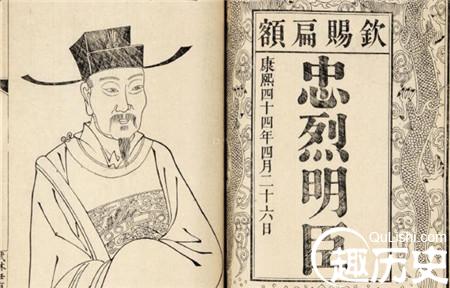 欽賜扁額
忠烈明臣
康熙四十四年四月二十六日
QuLishi.com
趣历史